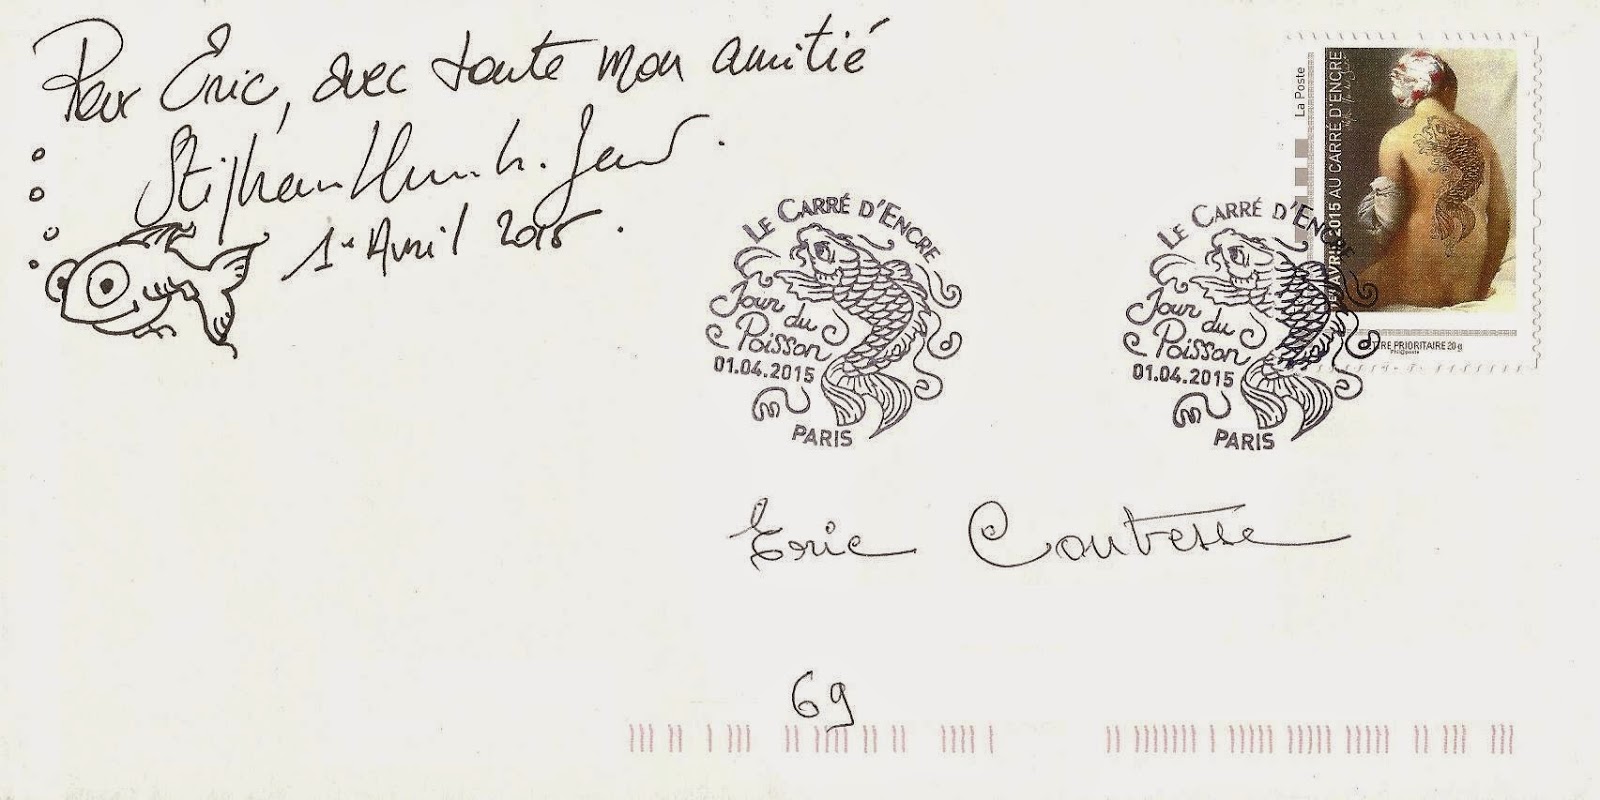 Pour Eric, avec toute mon amitié
1er Avril 2015.
La Poste
AVRIL 2015 AU CARRÉ D'ENCRE
TRE PRIORITAIRE 20g
Phil@poste
LE CARRÉ D'ENCRE
Jour du
Poisson
01.04.2015
PARIS
LE CARRÉ D'ENCRE
Jour du
Poisson
01.04.2015
PARIS
Eric Contesse
69